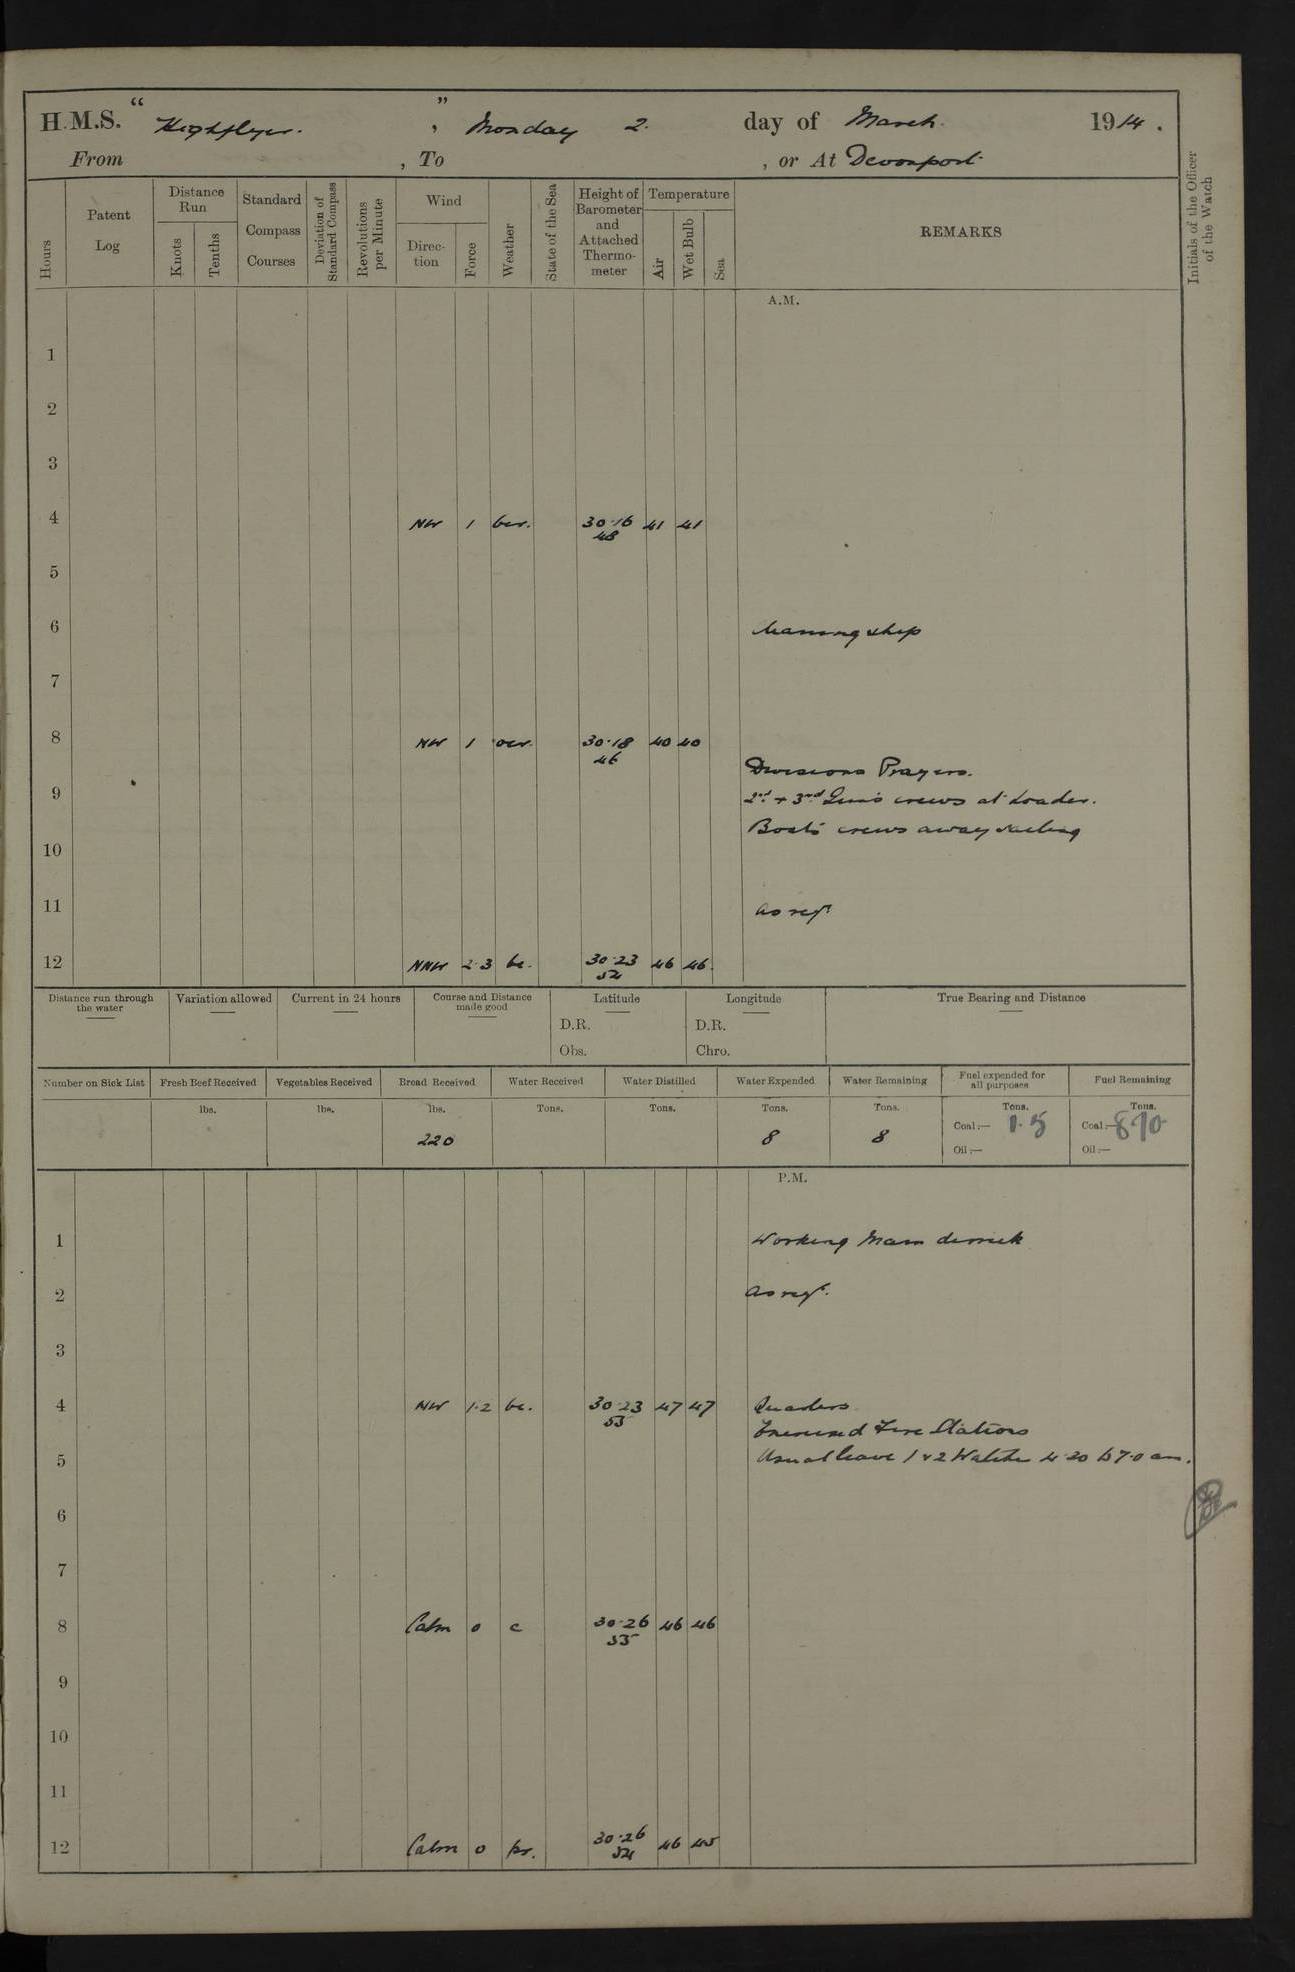 H.M.S. " Highflyer. " , Monday 2. day of March 1914.
From , To , or At Devonport
Hours
Patent Log
Distance Run
Knots
Tenths
Standard Compass Courses
Deviation of Standard Compass
Revolutions per Minute
Wind
Direc-tion
Force
Weather
State of the Sea
Height of Barometer and Attached Thermo-meter
Temperature
Air
Wet Bulb
Sea
REMARKS
Initials of the Officer of the Watch
A.M.
1
2
3
4 NW 1 bcr. 30·16 41 41
48
5
6 Cleaning ship
7
8 NW 1 ocr. 30·18 40 40
46
Divisions Prayers.
9 2nd + 3rd Guns crews at Loader.
Boats crews away sailing
10
11 As reqd
12 NNW 2·3 bc. 30·23 46 46.
54
Distance run through the water
Variation allowed
Current in 24 hours
Course and Distance made good
Latitude
D.R.
Obs.
Longitude
D.R.
Chro.
True Bearing and Distance
Number on Sick List
Fresh Beef Received
Vegetables Received
Bread Received
Water Received
Water Distilled
Water Expended
Water Remaining
Fuel expended for all purposes
Fuel Remaining
lbs. lbs. lbs. Tons. Tons. Tons. Tons. Tons. Tons.
220 8 8 Coal:— 1·5 Coal:— 870
Oil:— Oil:—
P.M.
1 Working Main derrick
2 As reqd.
3
4 NW 1·2 bc. 30·23 47 47 Quarters
53
Exercised Fire Stations
5 Usual leave 1 & 2 Watches 4·20 to 7·0 am.
6
7
8 Calm 0 c 30·26 46 46
55
9
10
11
12 Calm 0 30·26 46 45
54